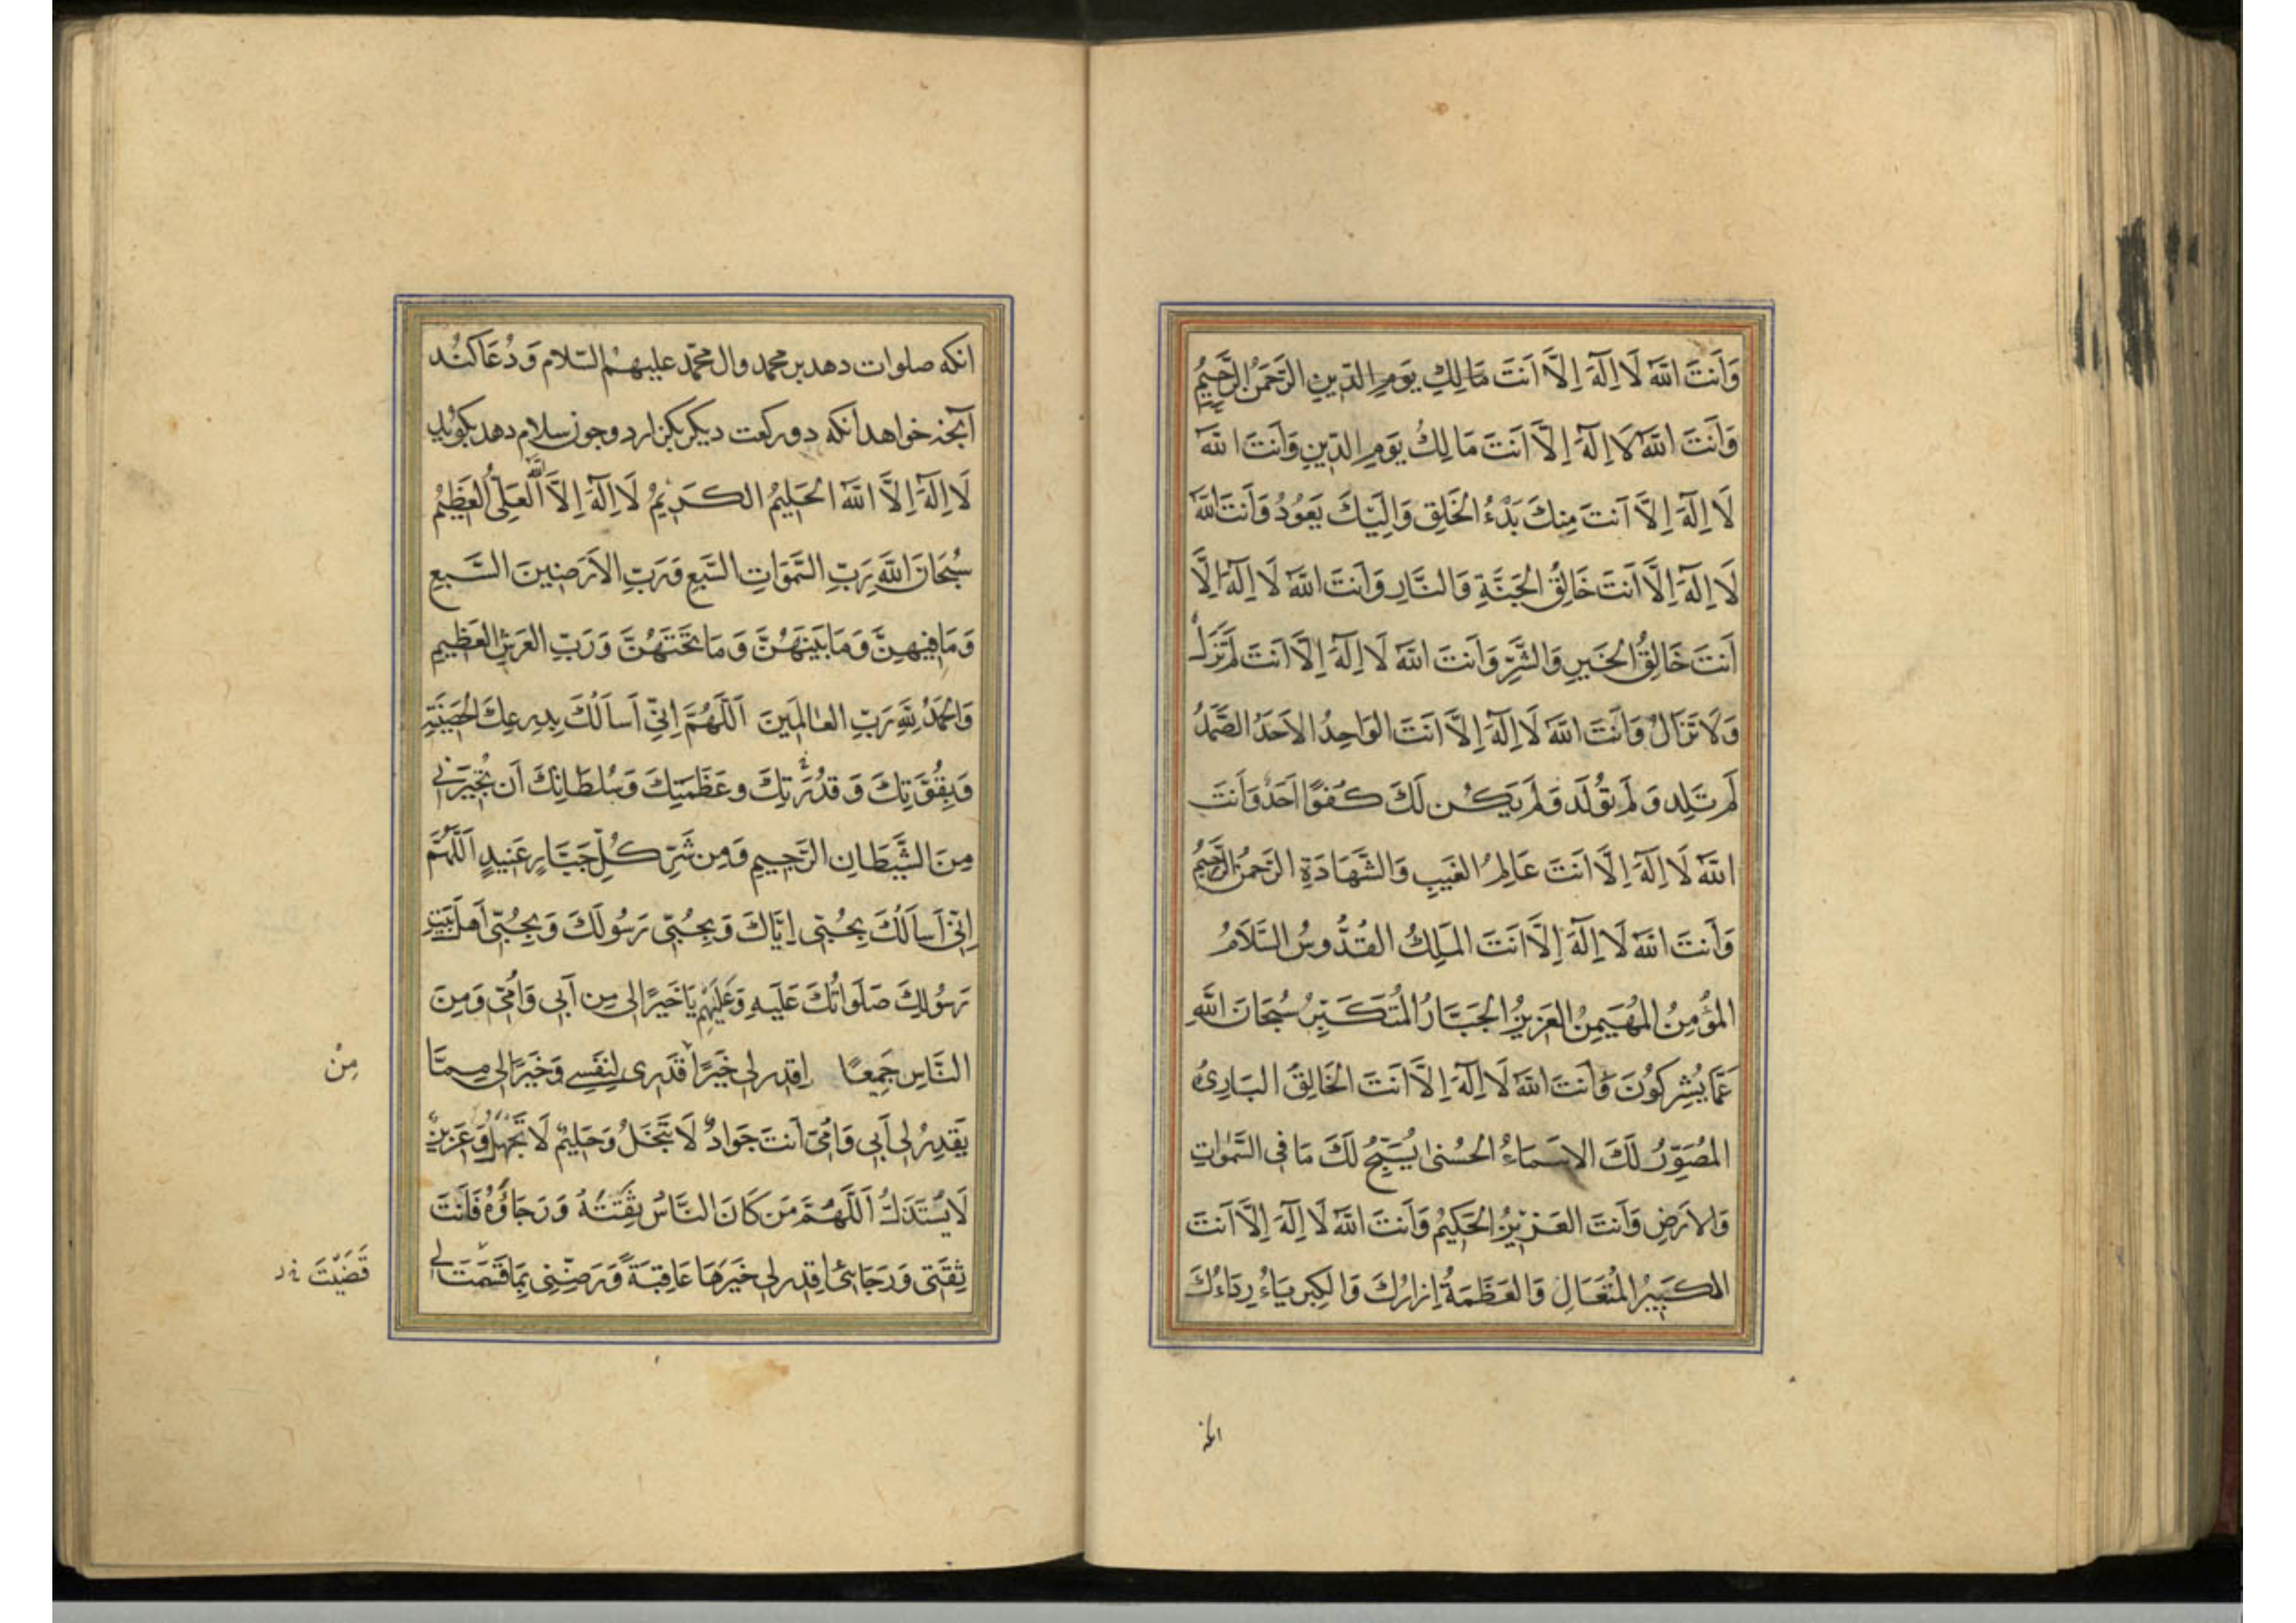 وَاَنتَ اللهُ لَا اِلٰهَ اِلَّا اَنتَ مَالِكِ يَومِ الدّينِ الرَّحمٰنُ الرَّحيمُ
وَاَنتَ اللهُ لَا اِلٰهَ اِلَّا اَنتَ مَالِكُ يَومِ الدّينِ وَاَنتَ اللهُ
لَا اِلٰهَ اِلَّا اَنتَ مِنكَ بَدْءُ الخَلقِ وَاِلَيْكَ يَعُودُ وَاَنتَ اللهُ
لَا اِلٰهَ اِلَّا اَنتَ خَالِقُ الجَنَّةِ وَالنَّارِ وَاَنتَ اللهُ لَا اِلٰهَ اِلَّا
اَنتَ خَالِقُ الخَيرِ وَالشَّرِّ وَاَنتَ اللهُ لَا اِلٰهَ اِلَّا اَنتَ لَم تَزَلْ
وَلَا تَزَالُ وَاَنتَ اللهُ لَا اِلٰهَ اِلَّا اَنتَ الوَاحِدُ الاَحَدُ الصَّمَدُ
لَم تَلِد وَلَم تُولَد وَلَم يَكُن لَكَ كُفوًا اَحَدٌ وَاَنتَ
اللهُ لَا اِلٰهَ اِلَّا اَنتَ عَالِمُ الغَيبِ وَالشَّهَادَةِ الرَّحمٰنُ الرَّحيمُ
وَاَنتَ اللهُ لَا اِلٰهَ اِلَّا اَنتَ المَلِكُ القُدُّوسُ السَّلَامُ
المُؤمِنُ المُهَيمِنُ العَزيزُ الجَبَّارُ المُتَكَبِّرُ سُبحَانَ اللهِ
عَمَّا يُشرِكُونَ وَاَنتَ اللهُ لَا اِلٰهَ اِلَّا اَنتَ الخَالِقُ البَارِئُ
المُصَوِّرُ لَكَ الاَسمَاءُ الحُسنىٰ يُسَبِّحُ لَكَ مَا فِى السَّمٰواتِ
وَالاَرضِ وَاَنتَ العَزيزُ الحَكيمُ وَاَنتَ اللهُ لَا اِلٰهَ اِلَّا اَنتَ
الكَبيرُ المُتَعَالِ وَالعَظَمَةُ اِزَارُكَ وَالكِبرِيَاءُ رِدَاءُكَ
انكه
انكه صلوات دهد بر محمد وال محمّد عليهمُ السّلام وَدُعَا كنُد
آنچه خواهد انكه دو ركعت ديكر بكزارد وچون سلام دهد بكويد
لَا اِلٰهَ اِلَّا اللهُ الحَليمُ الكَريمُ لَا اِلٰهَ اِلَّا اللهُ العَلِىُّ العَظيمُ
سُبحَانَ اللهِ رَبِّ السَّمٰوَاتِ السَّبعِ وَرَبِّ الاَرَضينَ السَّبعِ
وَمَا فيهِنَّ وَمَا بَينَهُنَّ وَمَا تَحتَهُنَّ وَرَبِّ العَرشِ العَظيمِ
وَالحَمدُ لِلّٰهِ رَبِّ العٰالَمينَ اَللّٰهُمَّ اِنّى اَسأَلُكَ بِدِرعِكَ الحَصينَةِ
وَبِقُوَّتِكَ وَقُدرَتِكَ وعَظَمَتِكَ وَسُلطَانِكَ اَن تُجيرَنى
مِنَ الشَّيطَانِ الرَّجيمِ وَمِن شَرِّ كُلِّ جَبَّارٍ عَنيدٍ اَللّٰهُمَّ
اِنّى اَسأَلُكَ بِحُبّى اِيَّاكَ وَبِحُبّى رَسُولَكَ وَبِحُبّى اَهلَ بَيتِ
رَسُولِكَ صَلَوَاتُكَ عَلَيهِ وَعَلَيهِم يَا خَيرًا لى مِن اَبى وَاُمّى وَمِنَ
النَّاسِ جَميعًا اِقدِر لى خَيرًا مِنْ قَدرى لِنَفسى وَخَيرًا لى مِمَّا
يَقدِرُ لى اَبى وَاُمّى اَنتَ جَوَادٌ لَا تَبخَلُ وَحَليمٌ لَا تَجهَلُ وَعَزيزٌ
لَا يُستَذَلُّ اَللّٰهُمَّ مَن كَانَ النَّاسُ ثِقَتَهُ وَرَجَاؤُهُ فَاَنتَ
ثِقَتى وَرَجَائى اِقدِر لى خَيرَهَا عَاقِبَةً وَرَضِّنى بِمَا قَسَمتَ لى
مِنْ
قَضَيْتَ